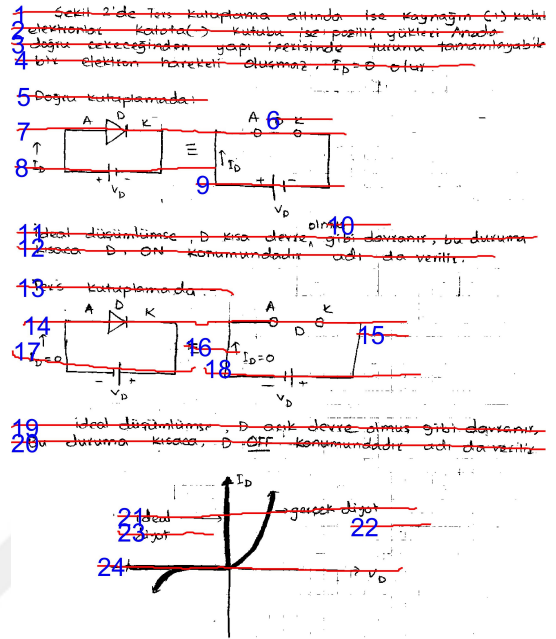 1 Şekil 2'de Ters kutuplama altında ise kaynağın (+) kutbu
2 elektronlar Katota(-) kutubu ise pozitif yükleri Anoda
3 doğru çekeceğinden yapı içerisinde turunu tamamlayabilir
4 bir elektron hareketi oluşmaz. ID=0 olur
5 Doğru kutuplamada:
6
7 A D K A D K
8 ID + - ≡ ID
VD
9 + -
VD
10 olmuş
11 ideal düşünülmse, D kısa devre, gibi davranır, bu duruma
12 kısaca D, ON konumundadır adı da verilir.
13 Ters kutuplamada
14 A D K A D K
15
16 ID=0
17 ID=0 - +
VD
18 - +
VD
19 ideal düşünülmse, D açık devre olmuş gibi davranır,
20 Bu duruma kısaca, D OFF konumundadır adı da verilir
ID
21 ideal gerçek diyot
22
23 diyot
24 VD